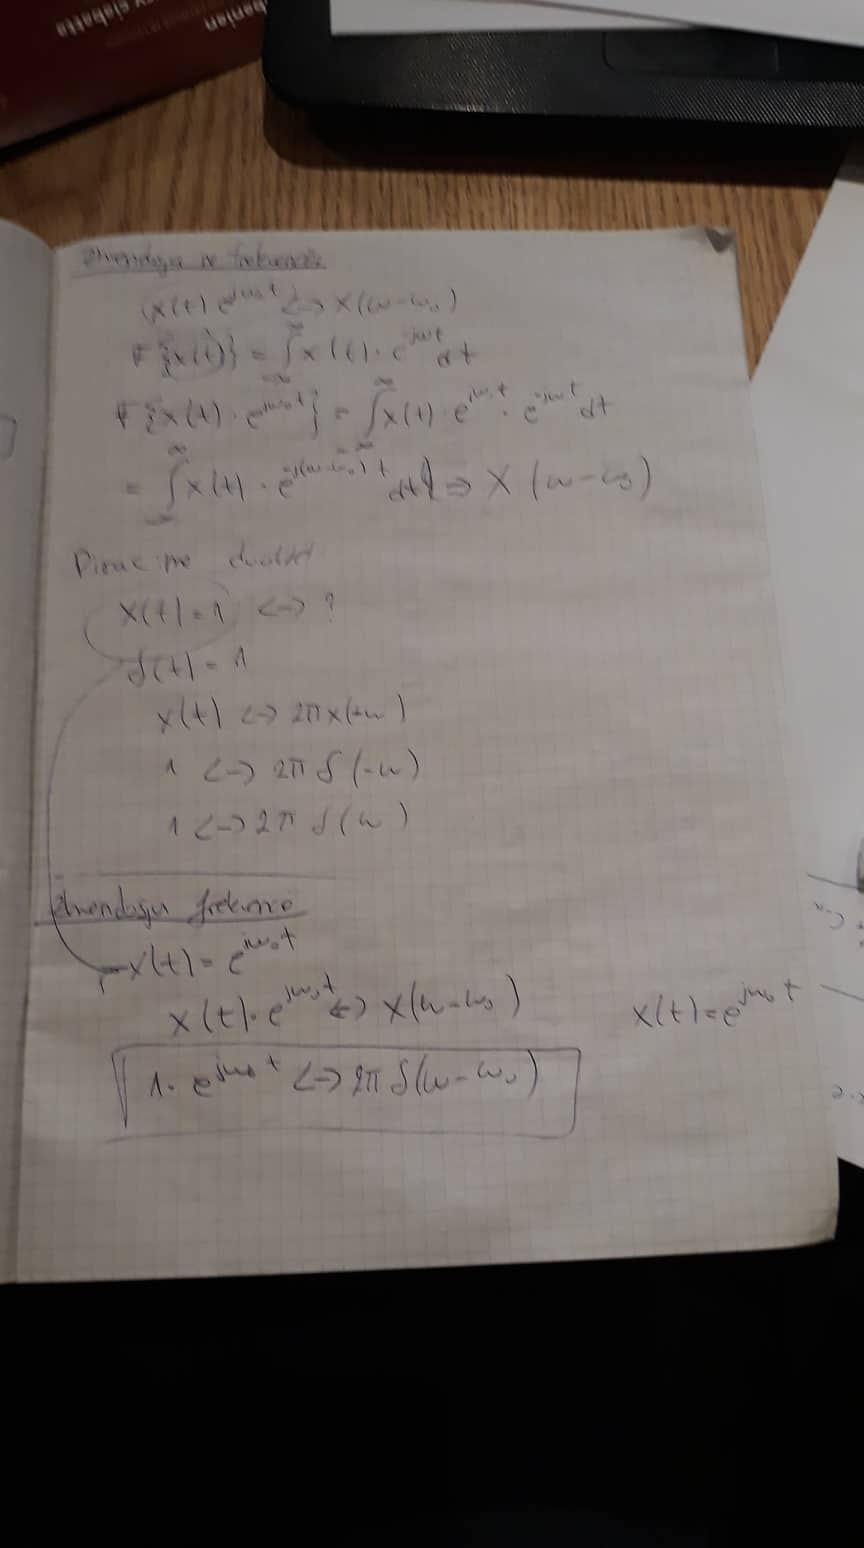 zhvendosja në frekuencë
x(t) e^{jω₀t} <-> X(ω-ω₀)
F{x(t)} = ∫_{-∞}^{∞} x(t) · e^{-jωt} dt
F{x(t) · e^{jω₀t}} = ∫_{-∞}^{∞} x(t) · e^{jω₀t} · e^{-jωt} dt
= ∫_{-∞}^{∞} x(t) · e^{-j(ω-ω₀)t} dt => X (ω-ω₀)
x(t)=1 <-> ?
δ(t)=1
x(t) <-> 2πx(-ω)
1 <-> 2π δ(-ω)
1 <-> 2π δ(ω)
zhvendosja frekuencë
x(t) = e^{jω₀t}
x(t) · e^{jω₀t} <-> X(ω-ω₀)
x(t) = e^{jω₀t}
1 · e^{jω₀t} <-> 2π δ(ω-ω₀)